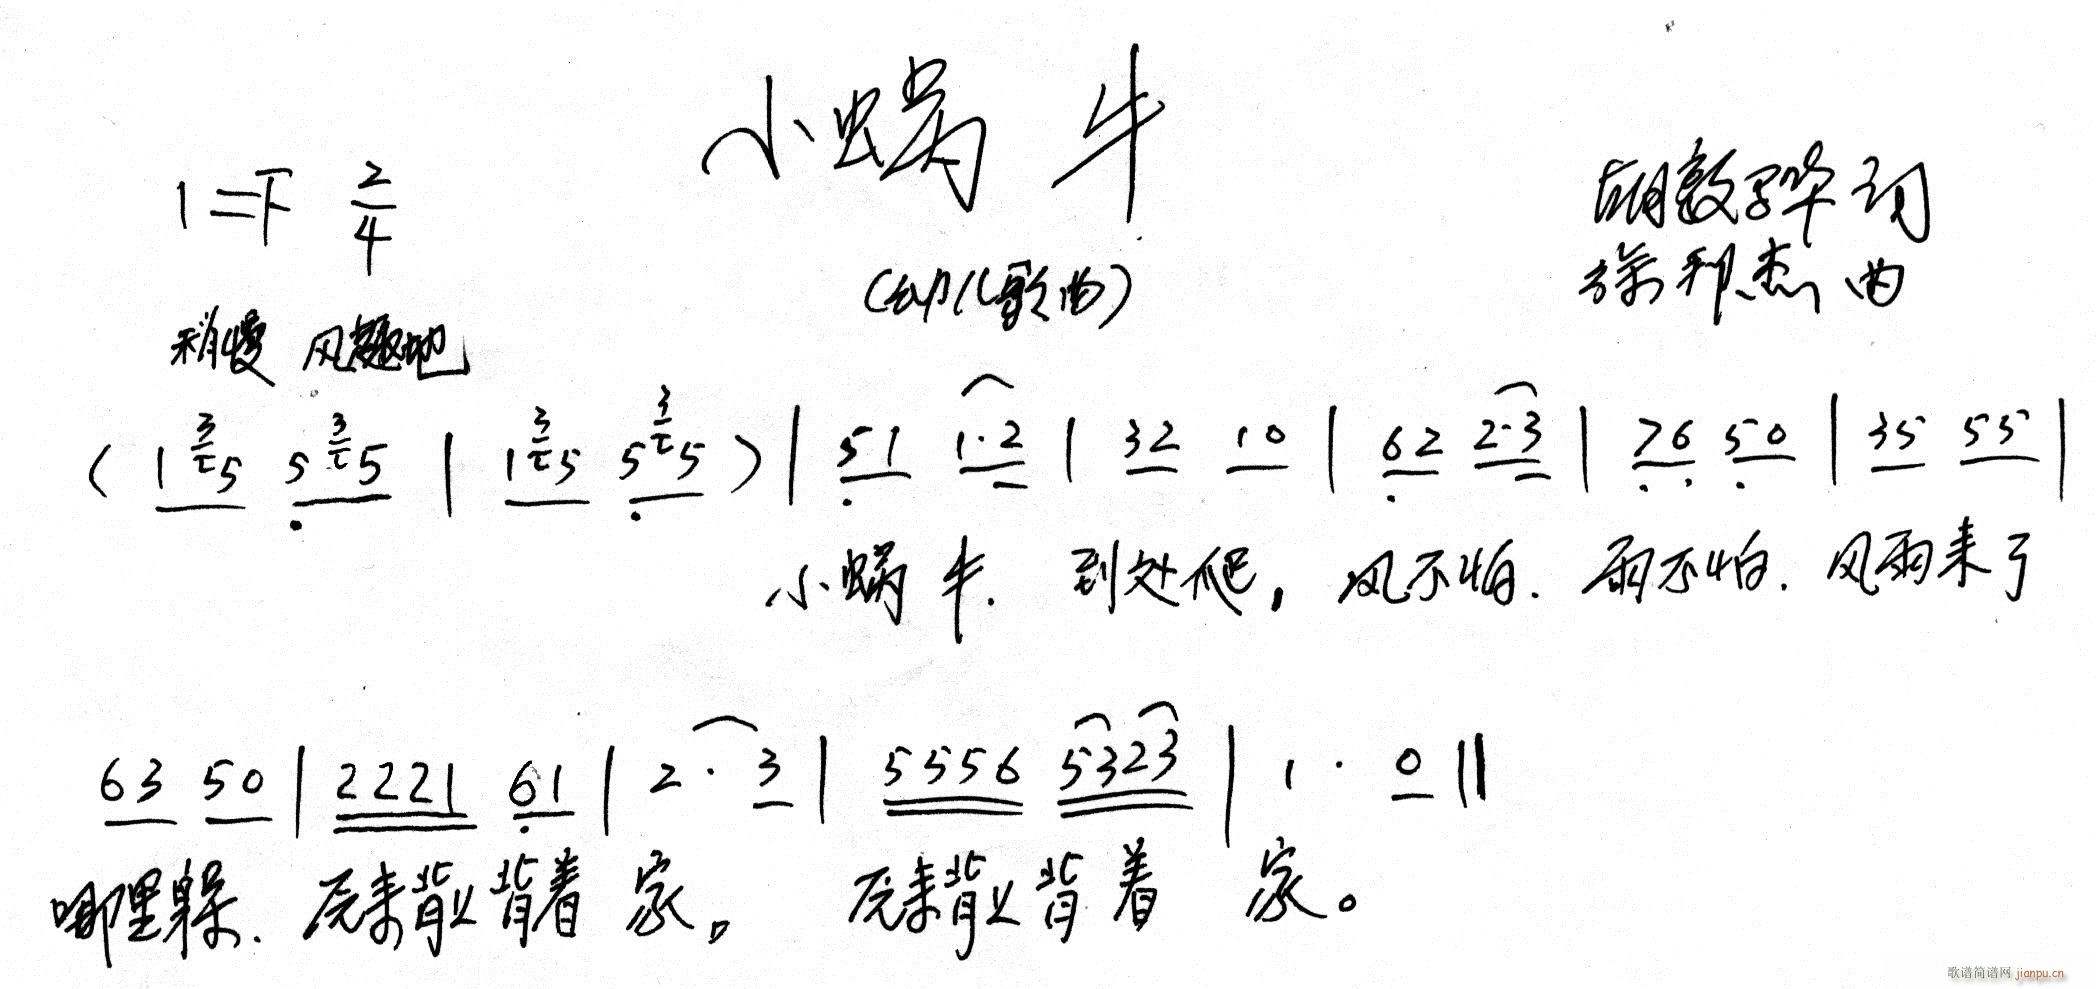 小蜗牛
1=F 2/4
胡敦骅词
(幼儿歌曲)
徐邦杰曲
稍慢 风趣地
( 1 3 5 5 3 5 | 1 3 5 5 3 5 ) | 5 1 1·2 | 3 2 1 0 | 6 2 2·3 | 7 6 5 0 | 3 5 5 5 |
小蜗牛. 到处爬, 风不怕. 雨不怕. 风雨来了
6 3 5 0 | 2 2 2 1 6 1 | 2 · 3 | 5 5 5 6 5 3 2 3 | 1 · 0 ‖
哪里躲. 原来背上背着家。 原来背上背着家。
歌谱简谱网 jianpu.cn